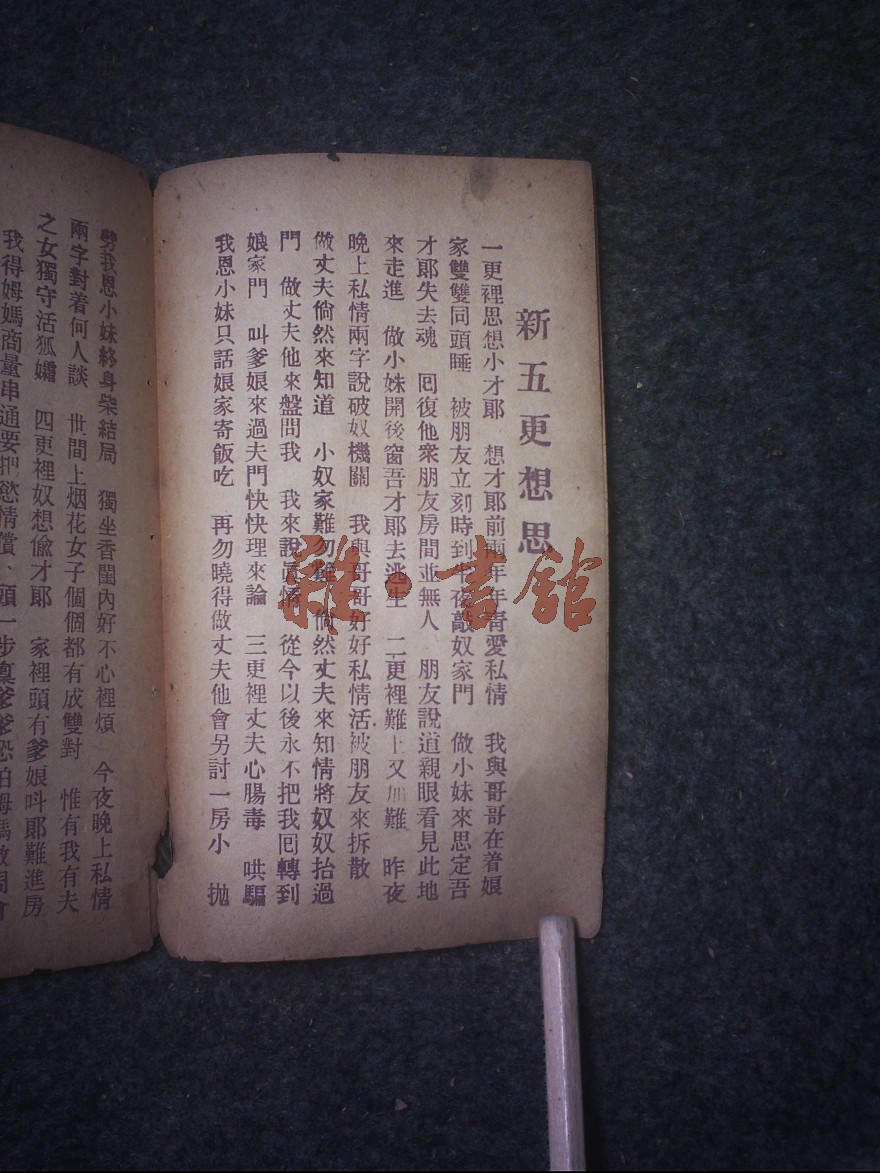 新五更想思
一更裡思想小才郎 想才郎前兩年年青愛私情 我與哥哥在着娘
家雙雙同頭睡 被朋友立刻時到半夜敲奴家門 做小妹來思定吾
才郎失去魂 囘復他衆朋友房間並無人 朋友說道親眼看見此地
來走進 做小妹開後窗吾才郎去逃生 二更裡難上又加難 昨夜
晚上私情兩字說破奴機關 我與哥哥好好私情活被朋友來拆散
做丈夫倘然來知道 小奴家難勿難 倘然丈夫來知情將奴奴抬過
門 做丈夫他來盤問我 我來說眞情 從今以後永不把我囘轉到
娘家門 叫爹娘來過夫門快快理來論 三更裡丈夫心腸毒 哄騙
我恩小妹只話娘家寄飯吃 再勿曉得做丈夫他會另討一房小 拋
我恩小妹終身柴結局 獨坐香閨內好不心裡煩 今夜晚上私情
兩字對着何人談 世間上烟花女子個個都有成雙對 惟有我有夫
之女獨守活孤孀 四更裡奴想偸才郎 家裡頭有爹娘呌郎難進房
我得姆媽商量串通要把慾情償 頭一步稟爹爹恐怕姆媽
雜·書館